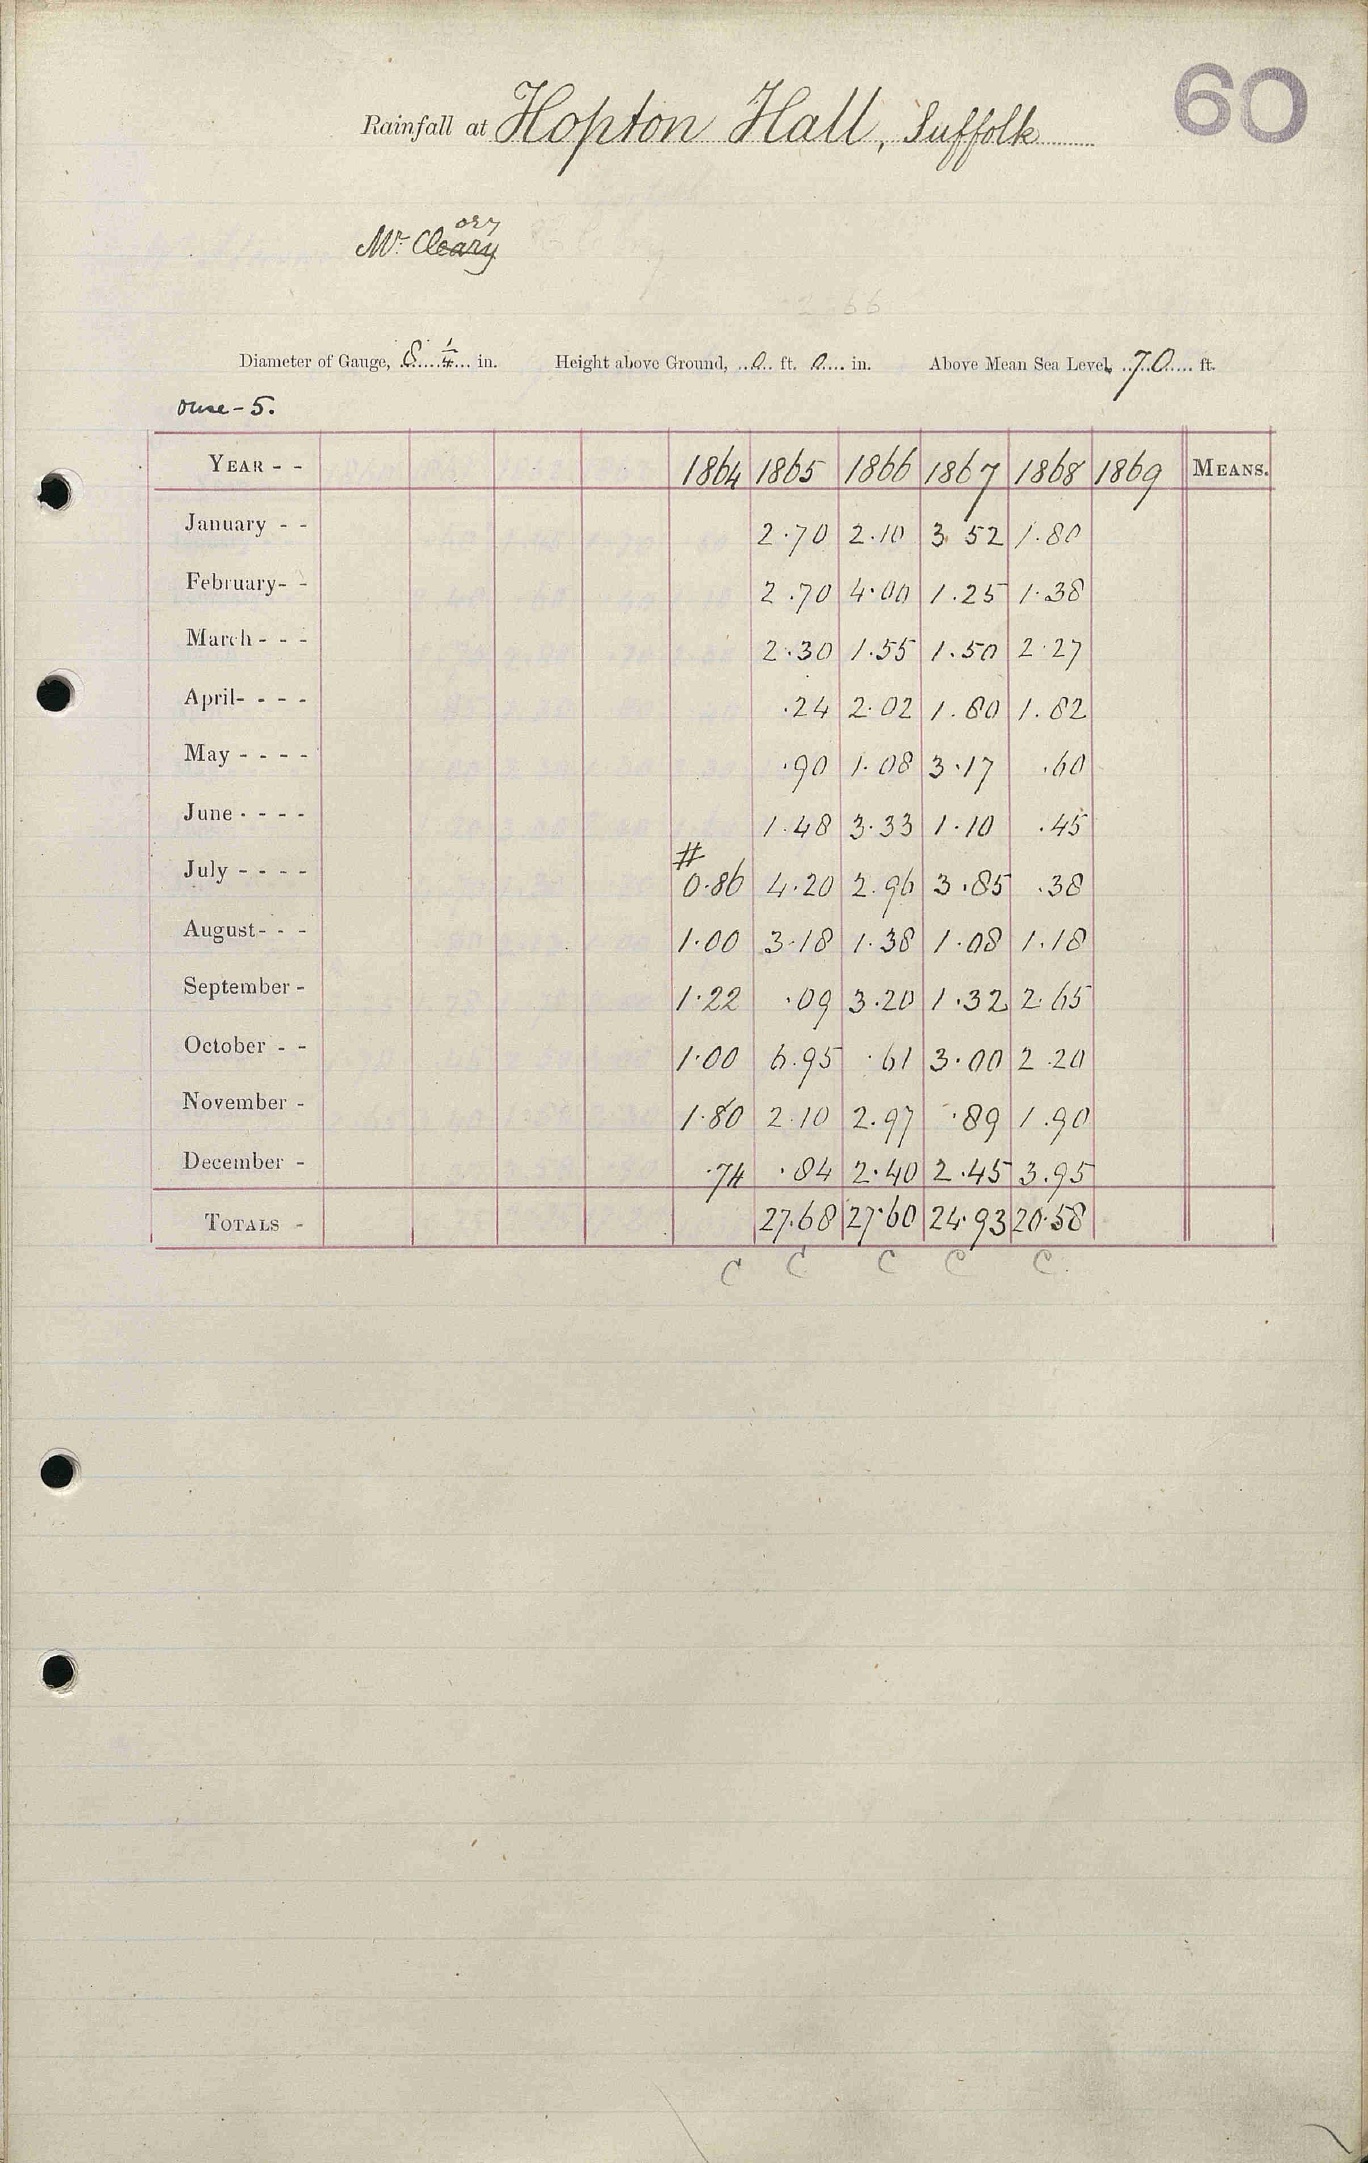 60
Rainfall at Hopton Hall, Suffolk
ory
Mr. Cleary
Diameter of Gauge, 8 1/4 in. Height above Ground, 0 ft. 0 in. Above Mean Sea Level, 70 ft.
Ouse - 5.
YEAR - - 1864 1865 1866 1867 1868 1869 MEANS.
January - - 2.70 2.10 3.52 1.80
February - - 2.70 4.00 1.25 1.38
March - - - 2.30 1.55 1.50 2.27
April - - - - .24 2.02 1.80 1.82
May - - - - .90 1.08 3.17 .60
June - - - - 1.48 3.33 1.10 .45
#
July - - - - 0.86 4.20 2.96 3.85 .38
August - - - 1.00 3.18 1.38 1.08 1.18
September - 1.22 .09 3.20 1.32 2.65
October - - 1.00 6.95 .61 3.00 2.20
November - 1.80 2.10 2.97 .89 1.90
December - .74 .84 2.40 2.45 3.95
TOTALS - 27.68 27.60 24.93 20.58
C C C C C